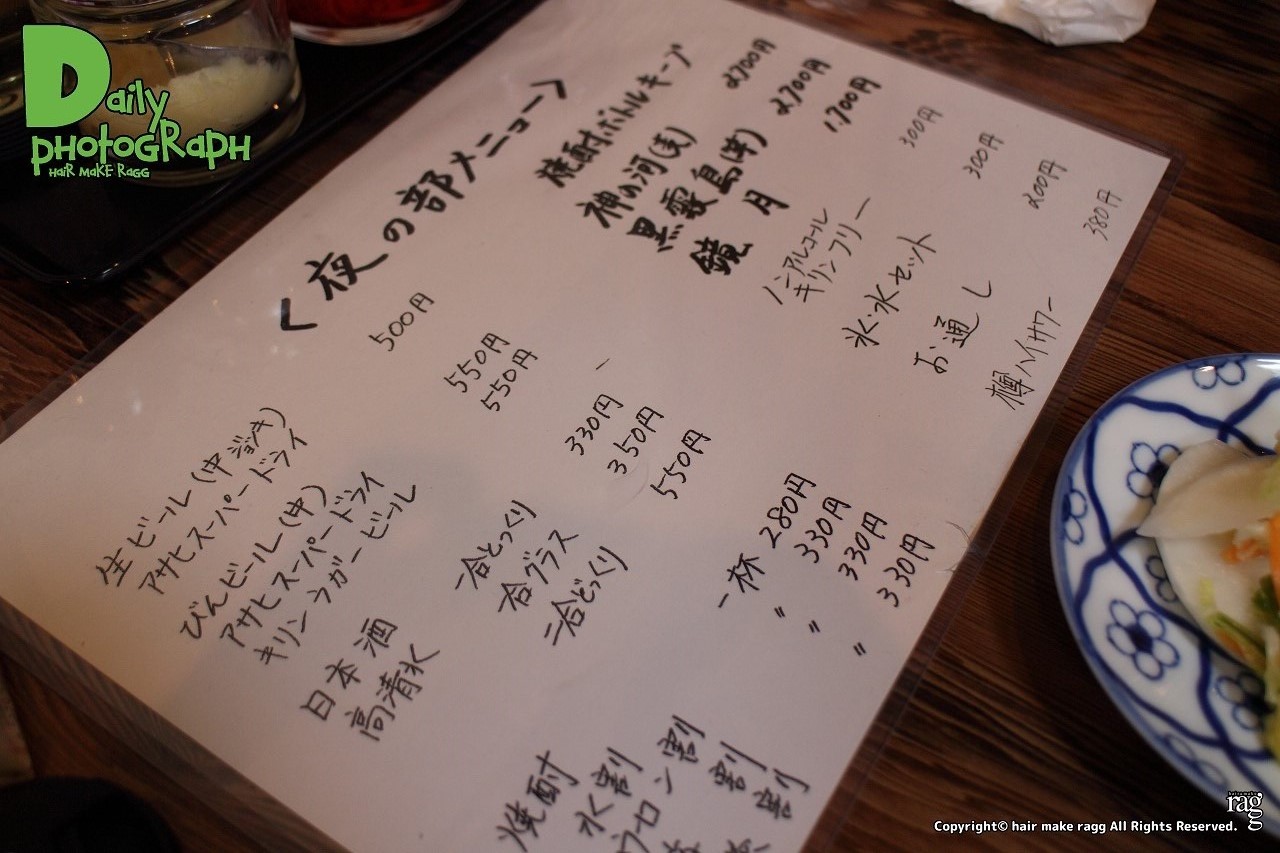 Daily
PHOTOGRAPH
HAIR MAKE RAGG
<夜の部メニュー>
生ビール(中ジョッキ) 500円
アサヒスーパードライ
びんビール(中)
アサヒスーパードライ 550円
キリンラガービール 550円
日本酒
高清水
一合とっくり 330円
一合グラス 350円
二合とっくり 550円
焼酎
水割 一杯 280円
ウーロン割 〃 330円
割 〃 330円
割 〃 330円
焼酎ボトルキープ
神の河(麦) 2,700円
黒霧島(芋) 2,700円
鏡月 1,700円
ノンアルコール
キリンフリー 300円
氷・水セット 300円
お通し 200円
樽ハイサワー 380円
rag
Copyright© hair make ragg All Rights Reserved.